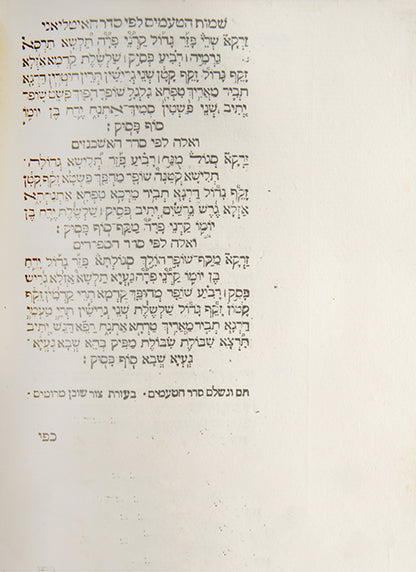 שמות הטעמים לפי סדר האיטליאני
זרקא שרי פזר גדול קרני פרה תלשא תרסא
גרמיה׀ רביע פסיק׀ שלשלת קדמא אזלא
זקף גדול זקף קטן שני גרישין תרין חוטרין דרגא
תביר מאריך טפחא גלגל שופר הפוך פשט שופר
יתיב שני פשטין סמיך אתנח ירח בן יומו
סוף פסוק׃
ואלה לפי סדר האשכנזים
זרקא סגול מנח׀ רביע פזר תלישא גדולה
תלישא קטנה שופר מהפך פשטא זקף קטן
זקף גדול דרגא תביר מרכא טפחא אתנחתא
אזלא גרש גרשים יתיב פסיק׀ שלשלת ירח בן
יומו קרני פרה מקף סוף פסוק׃
ואלה לפי סדר הספרדים
זרקא מקף שופר הולך סגולתא פזר גדול ירח
בן יומו קרני פרה געיא תלשא אזלא גריש
פסק׀ רביע שופר מהופך קדמא תרי קדמין זקף
קטן זקף גדול שלשלת שני גרישין תרי טעמי
דרגא תביר מאריך טרחא אתנח רפא דגש יתיב
תרצא שבולת שבולת מפיק בהא שבא געיא
געיא שבא סוף פסוק׃
תם ונשלם סדר הטעמים · בעזרת צור שוכן מרומים ·
כפו